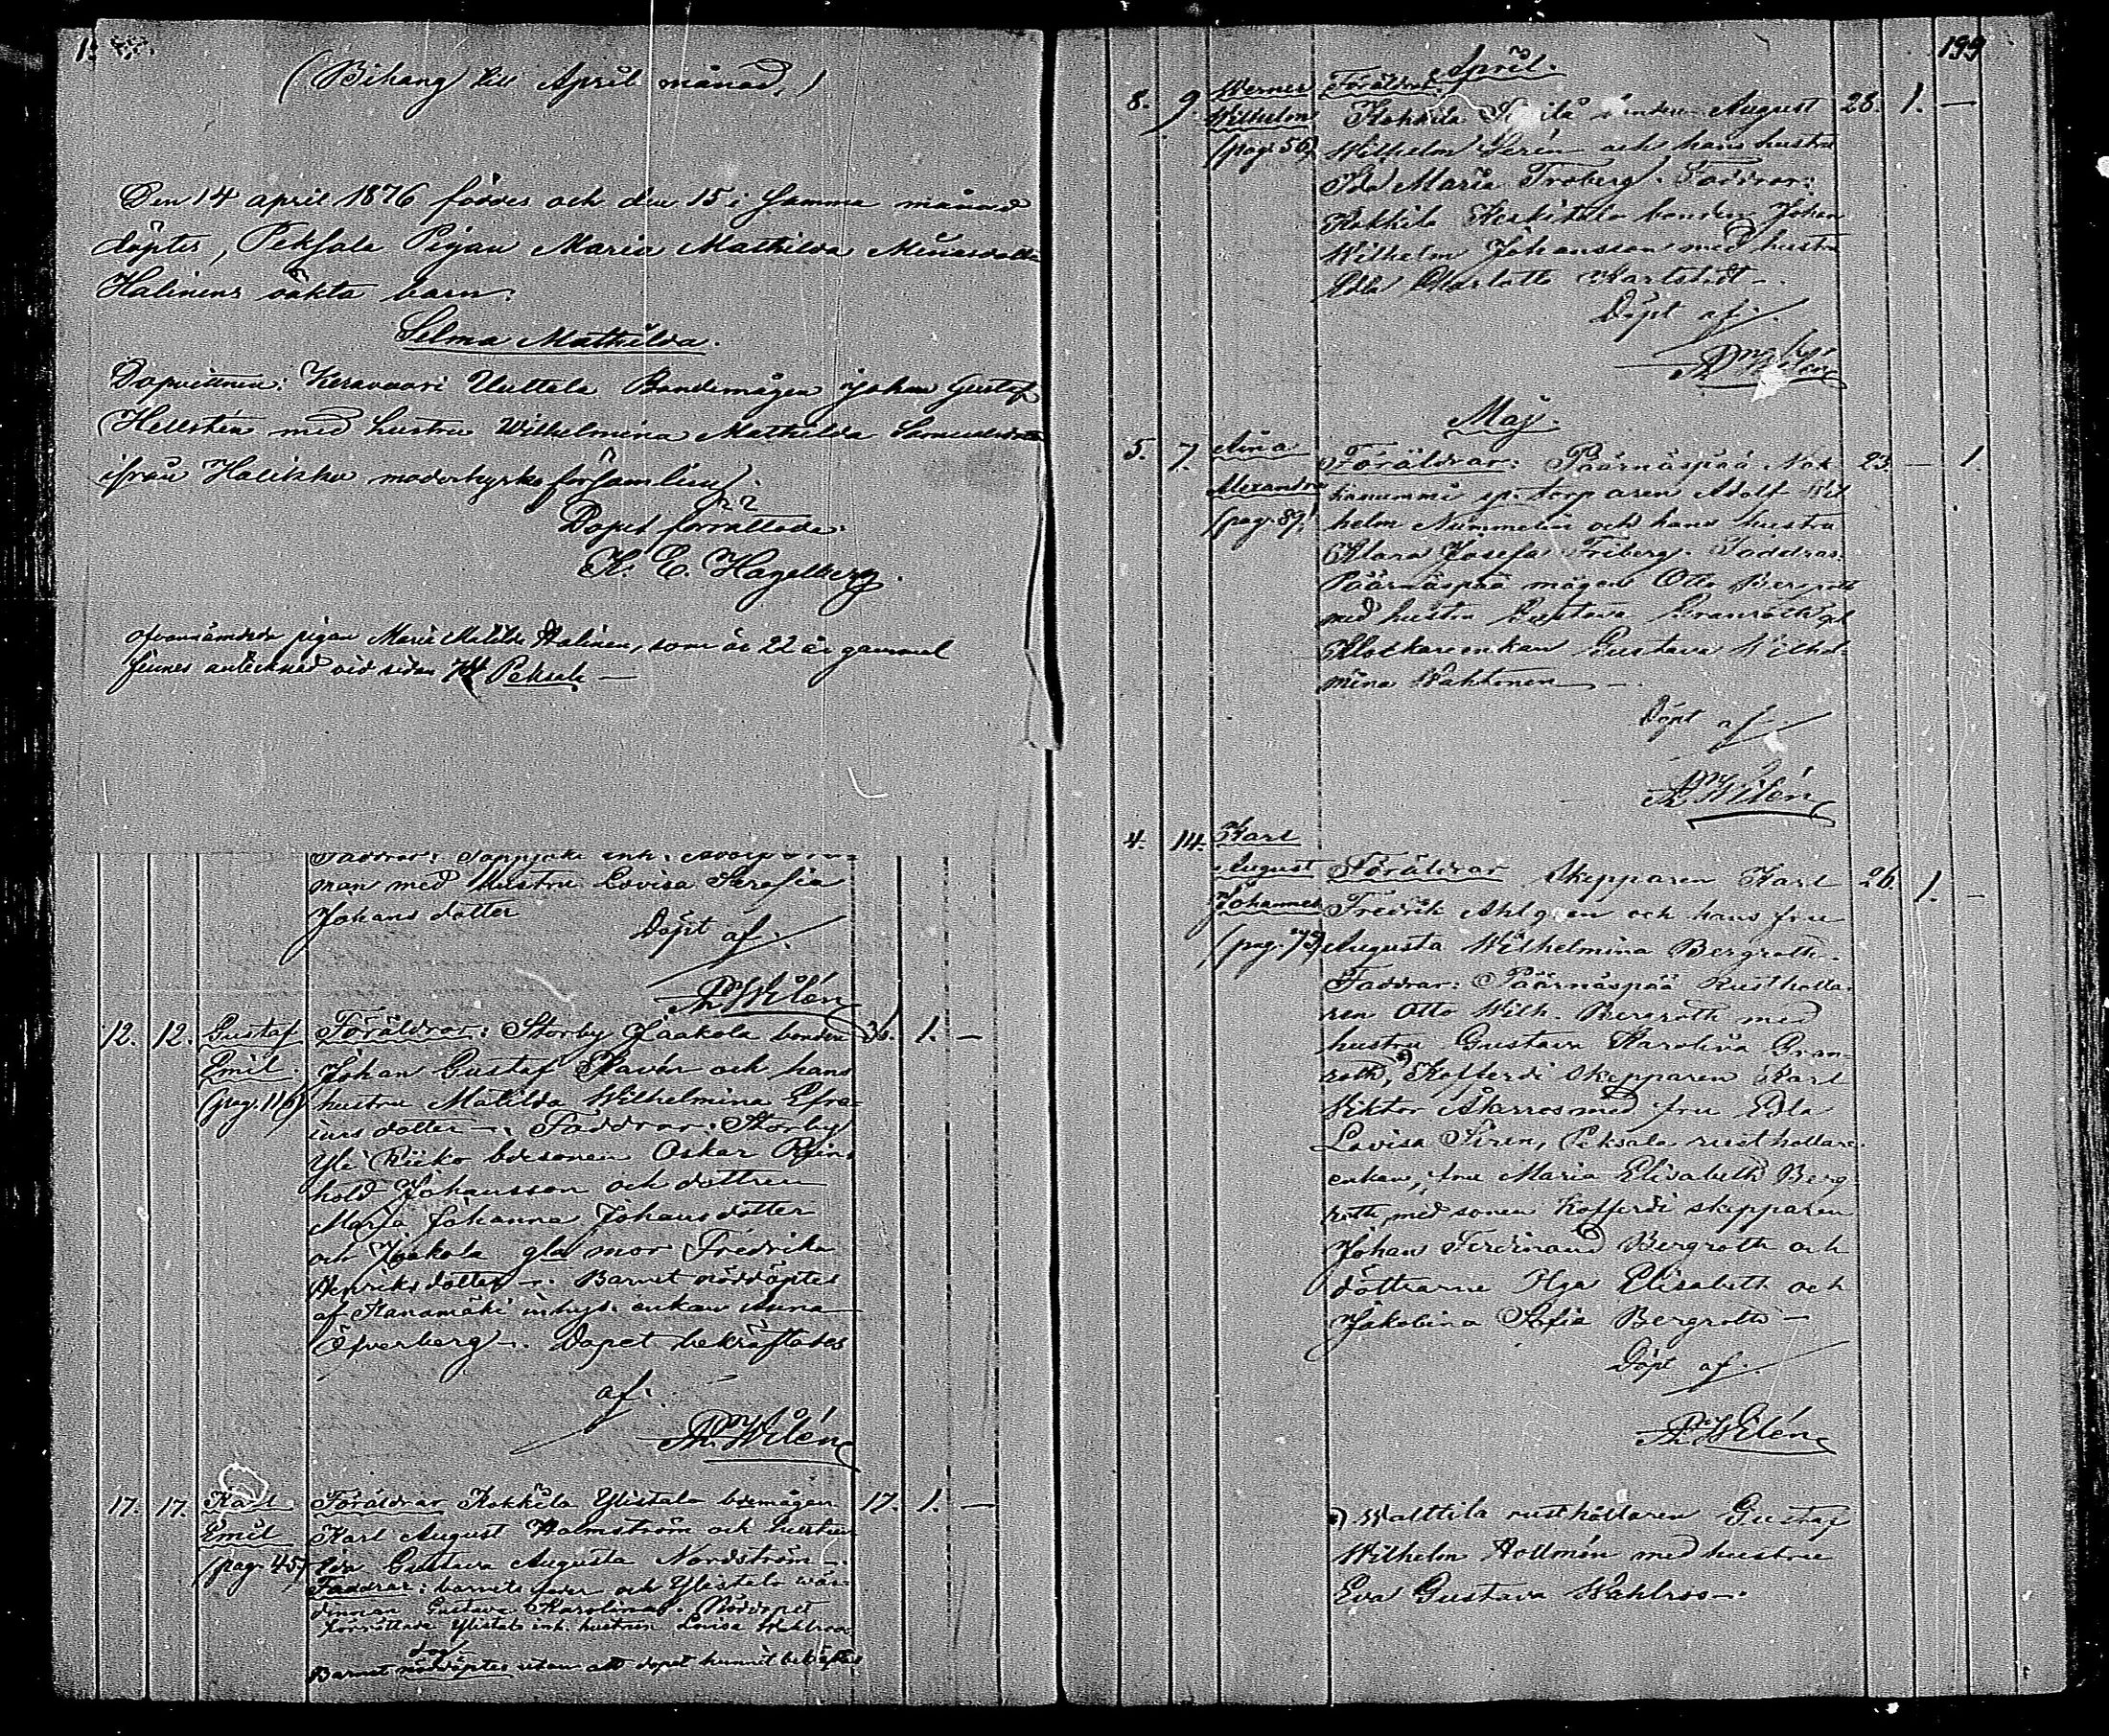 (Bihang till April månad,)
Den 14 april 1876 föddes och den 15 i samma månad
döptes, Peksala Pigan Maria Mathilda
Halinens oäkta barn:
Selma Mathilda.
Dopvittnen: Keravuori Uuttala Bondemågen Johan Gustaf
Hellstén med hustru Wilhelmina Mathilda
ifrån Halikko moderkyrko församling.
Dopet förrättade:
K. E. Hagelberg.
Ofvannämnda pigan Maria Matilda Halinen, som är 22 år gammal
finnes antecknad vid sidan Peksala —
Faddrar: inh.
man med hustru Lovisa Serafia
Johansdotter Döpt af:
Th. Wilén
12. 12. Gustaf Föräldrar: Storby Jaakola bonden 1. —
Emil. Johan Gustaf och hans
(pag. 116) hustru Matilda Wilhelmina Efra-
ims dotter —. Faddrar: Storby
Yli Riiko bdesonen Oskar Rein-
hold Johansson och dottren
Maria Johanna Johansdotter
och Jaakola gla mor Fredrika
Henriksdotter —. Barnet nöddöptes
af Kanamäki inhys. enkan Anna
Öfverberg —. Dopet bekräftades
af:
Th. Wilén
17. 17. Karl Föräldrar Kokkila Ylistalo bdemågen 17. 1. —
Emil Karl August Holmström och hustru
(pag. 45) Eva Gustava Augusta Nordström —.
Faddrar: barnets far och Ylistalo wär-
dinnan Gustava Karolina. Nöddopet
förrättade Ylistalo inh. hustrun Lovisa
dog
Barnet nöddöptes utan att dopet hunnit bekräftas
199
April.
8. 9. Werner Föräldrar:
Wilhelm Kokkila bonden August 28. 1. —
(pag. 56) Wilhelm Sirén och hans hustru
Ida Maria Froberg. Faddrar:
Kokkila Keskitalo bonden Johan
Wilhelm Johansson med hustru
Edla Charlotta
Döpt af:
Th. Wilén
Maj.
5. 7. Aina Föräldrar: Päärnäspää Nok- 23. — 1.
Alexandra kanummi sp. torparen Adolf Wil-
(pag. 89) helm Nummelin och hans hustru
Klara Josefa Friberg. Faddrar:
Päärnäspää mågen Otto Bergroth
med hustru Gustava Granroth och
enkan Gustava Wilhel-
mina Wahtonen —.
Döpt af:
Th. Wilén
4. 14. Karl
August Föräldrar Skepparen Karl 26. 1. —
Johannes Fredrik Ahlgren och hans fru
(pag. 75) Augusta Wilhelmina Bergroth.
Faddrar: Päärnäspää Rusthålla-
ren Otto Wilh. Bergroth med
hustru Gustava Karolina Gran-
roth, Kofferdi skepparen Karl
Viktor med fru Edla
Lovisa Siren, Peksala rusthållare
enkan, fru Maria Elisabeth Berg-
roth, med sonen Kofferdi skepparen
Johan Ferdinand Bergroth och
döttrarne Elisabeth och
Jakobina Sofia Bergroth —
Döpt af:
Th. Wilén
Walttila rusthållaren Gustaf
Wilhelm Hollmén med hustru
Eva Gustava Wahlroos —.